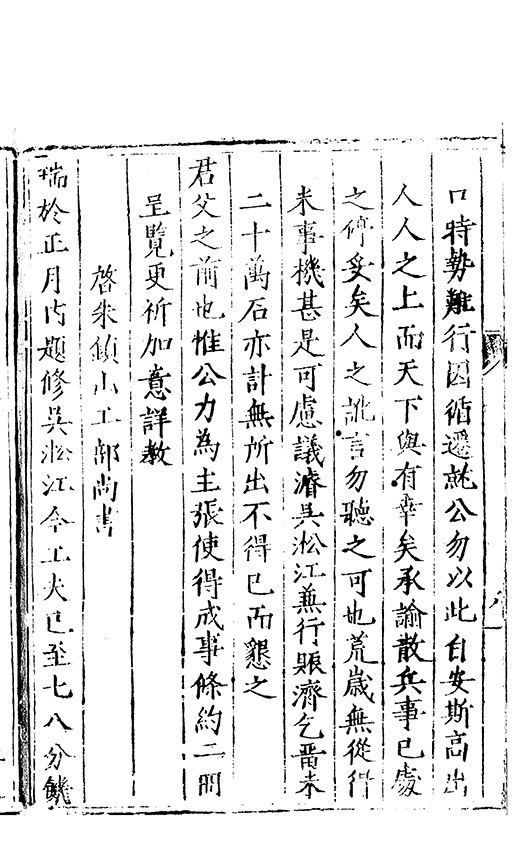 口特勢難行因循遷就公勿以此自安斯高出
人人之上而天下與有幸矣承諭散兵事已處
之停妥矣人之訛言勿聽之可也荒歲無從得
米事機甚是可慮議濬吳淞江兼行賑濟乞留米
二十萬石亦計無所出不得已而懇之
君父之前也惟公力為主張使得成事條約二冊
呈覽更祈加意詳教
啓朱鎮山工部尚書
瑞於正月內題修吳淞江今工夫已至七八分饑